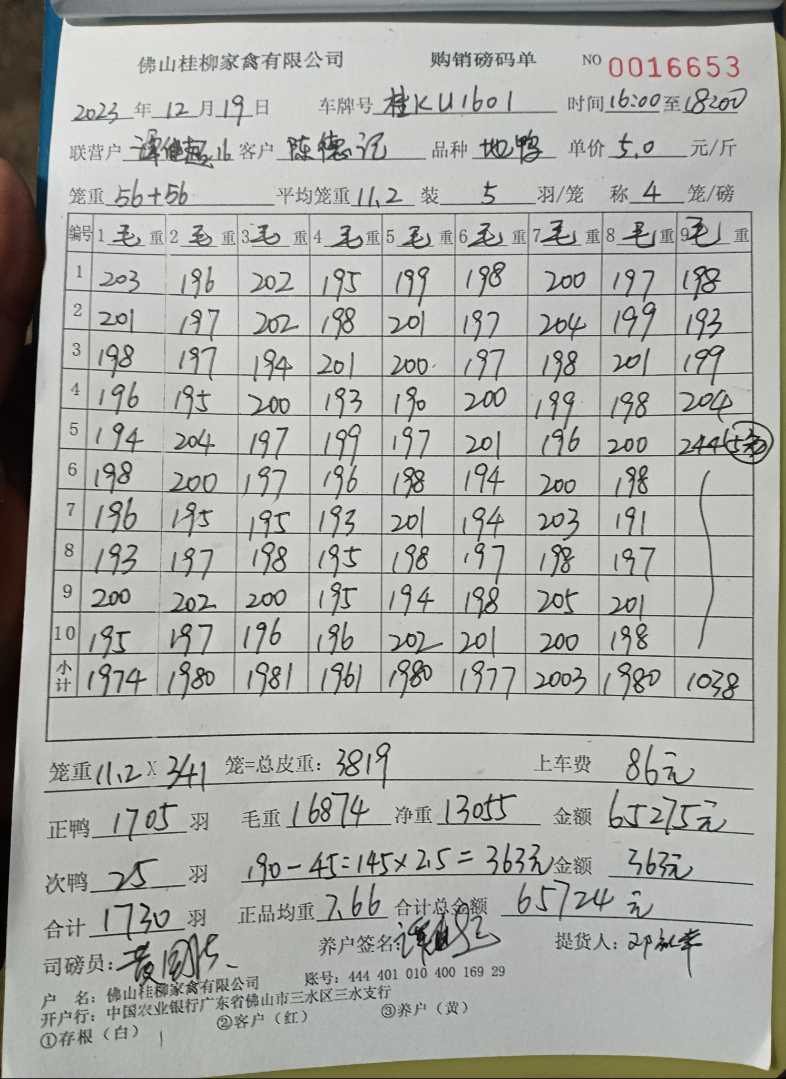 佛山桂柳家禽有限公司 购销磅码单 NO 0016653
2023年12月19日 车牌号 桂KU1601 时间16:00至18:00
联营户 谭 16 客户 陈德记 品种 地鸭 单价 5.0 元/斤
笼重 56+56 平均笼重 11.2 装 5 羽/笼 称 4 笼/磅
编号 1 毛 重 2 毛 重 3 毛 重 4 毛 重 5 毛 重 6 毛 重 7 毛 重 8 毛 重 9 毛 重
1 203 196 202 195 199 198 200 197 198
2 201 197 202 198 201 197 204 199 193
3 198 197 194 201 200 197 198 201 199
4 196 195 200 193 190 200 199 198 204
5 194 204 197 199 197 201 196 200 244
6 198 200 197 196 198 194 200 198
7 196 195 195 193 201 194 203 191
8 193 197 198 195 198 197 198 197
9 200 202 200 195 194 198 205 201
10 195 197 196 196 202 201 200 198
小计 1974 1980 1981 1961 1980 1977 2003 1980 1038
笼重 11.2 X 341 笼=总皮重: 3819 上车费 86元
正鸭 1705 羽 毛重 16874 净重 13055 金额 65275元
次鸭 25 羽 190-45=145×2.5=363元 金额 363元
合计 1730 羽 正品均重 7.66 合计总金额 65724元
司磅员: 黄 养户签名 提货人: 邓
户 名: 佛山桂柳家禽有限公司 账号: 444 401 010 400 169 29
开户行: 中国农业银行广东省佛山市三水区三水支行
①存根(白) ②客户(红) ③养户(黄)